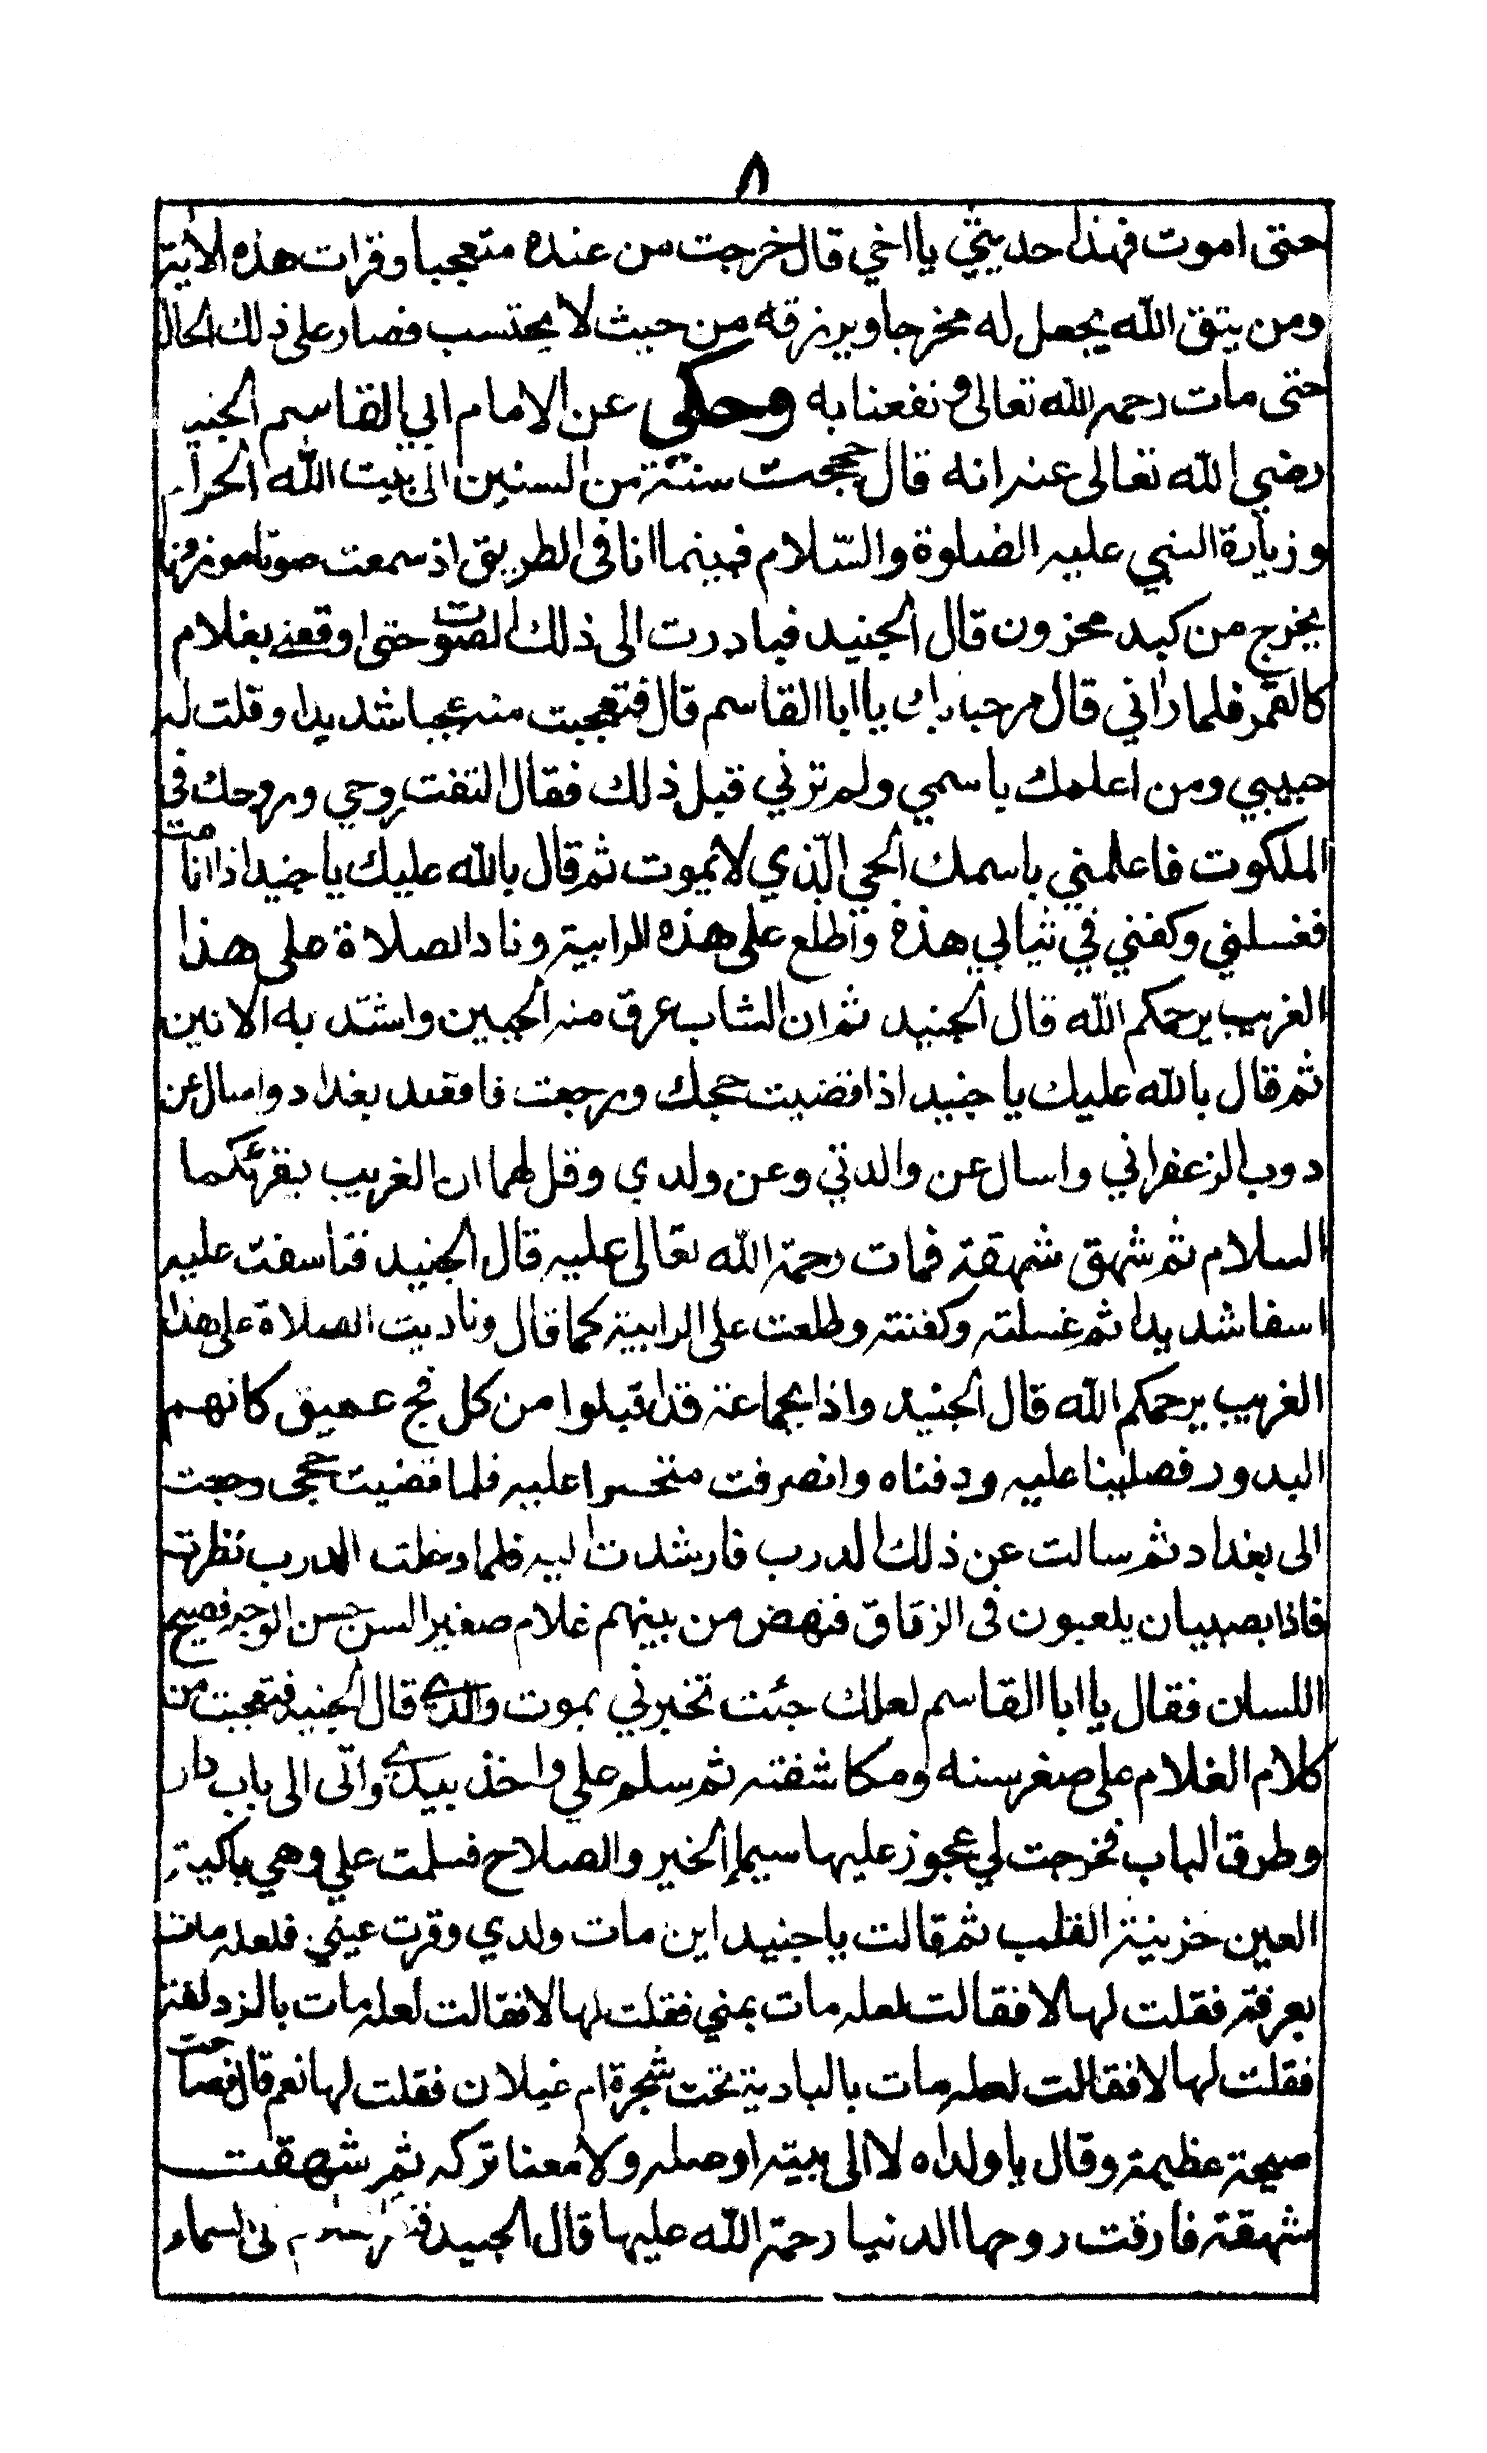 ٨
حتى اموت فهذا حديثي يا اخي قال فخرجت من عنده متعجبا وقرات هذه الاية
ومن يتق الله يجعل له مخرجا ويرزقه من حيث لا يحتسب فصار على ذلك الحال
حتى مات رحمه الله تعالى ونفعنا به وحكي عن الامام ابي القاسم الجنيد
رضي الله تعالى عنه انه قال حججت سنة من السنين الى بيت الله الحرام
وزيارة النبي عليه الصلوة والسّلام فبينما انا في الطريق اذ سمعت صوتا موزونا
يخرج من كبد محزون قال الجنيد فبادرت الى ذلك الصوت حتى اوقعني بغلام
كالقمر فلما راني قال مرحبا بك يا ابا القاسم قال فتعجبت منه عجبا شديدا وقلت له
حبيبي ومن اعلمك باسمي ولم ترني قبل ذلك فقال التفت روحي وروحك في
الملكوت فاعلمني باسمك الحي الّذي لا يموت ثم قال بالله عليك يا جنيد اذا انا مت
فغسلني وكفني في ثيابي هذه واطلع على هذه الرابية وناد الصلاة على هذا
الغريب يرحمكم الله قال الجنيد ثم ان الشاب عرق منه الجبين واشتد به الانين
ثم قال بالله عليك يا جنيد اذا قضيت حجك ورجعت فاقصد بغداد واسال عن
دوب الزعفراني واسال عن والدتي وعن ولدي وقل لهما ان الغريب يقرئكما
السلام ثم شهق شهقة فمات رحمة الله تعالى عليه قال الجنيد فتاسفت عليه
اسفا شديدا ثم غسلته وكفنته وطلعت على الرابية كما قال وناديت الصلاة على هذا
الغريب يرحمكم الله قال الجنيد واذا بجماعة قد اقبلوا من كل فج عميق كانهم
البدور فصلينا عليه ودفناه وانصرفت متحسرا عليه فلما قضيت حجي رجعت
الى بغداد ثم سالت عن ذلك الدرب فارشدت اليه فلما دخلت الدرب نظرته
فاذا بصبيان يلعبون في الزقاق فنهض من بينهم غلام صغير السن حسن الوجه فصيح
اللسان فقال يا ابا القاسم لعلك جئت تخبرني بموت والدي قال الجنيد فتعجبت من
كلام الغلام على صغر سنه ومكاشفته ثم سلم علي واخذ بيدي واتى الى باب دار
وطرق الباب فخرجت لي عجوز عليها سيما الخير والصلاح فسلمت علي وهي باكية
العين حزينة القلب ثم قالت يا جنيد اين مات ولدي وقرت عيني فلعله مات
بعرفة فقلت لها لا فقالت لعله مات بمني فقلت لها لا فقالت لعله مات بالزدلفة
فقلت لها لا فقالت لعله مات بالبادية تحت شجرة ام غيلان فقلت لها نعم قال فصاحت
صيحة عظيمة وقال يا ولداه لا الى بيته اوصله ولا معنا تركه ثم شهقت
شهقة فارقت روحها الدنيا رحمة الله عليها قال الجنيد